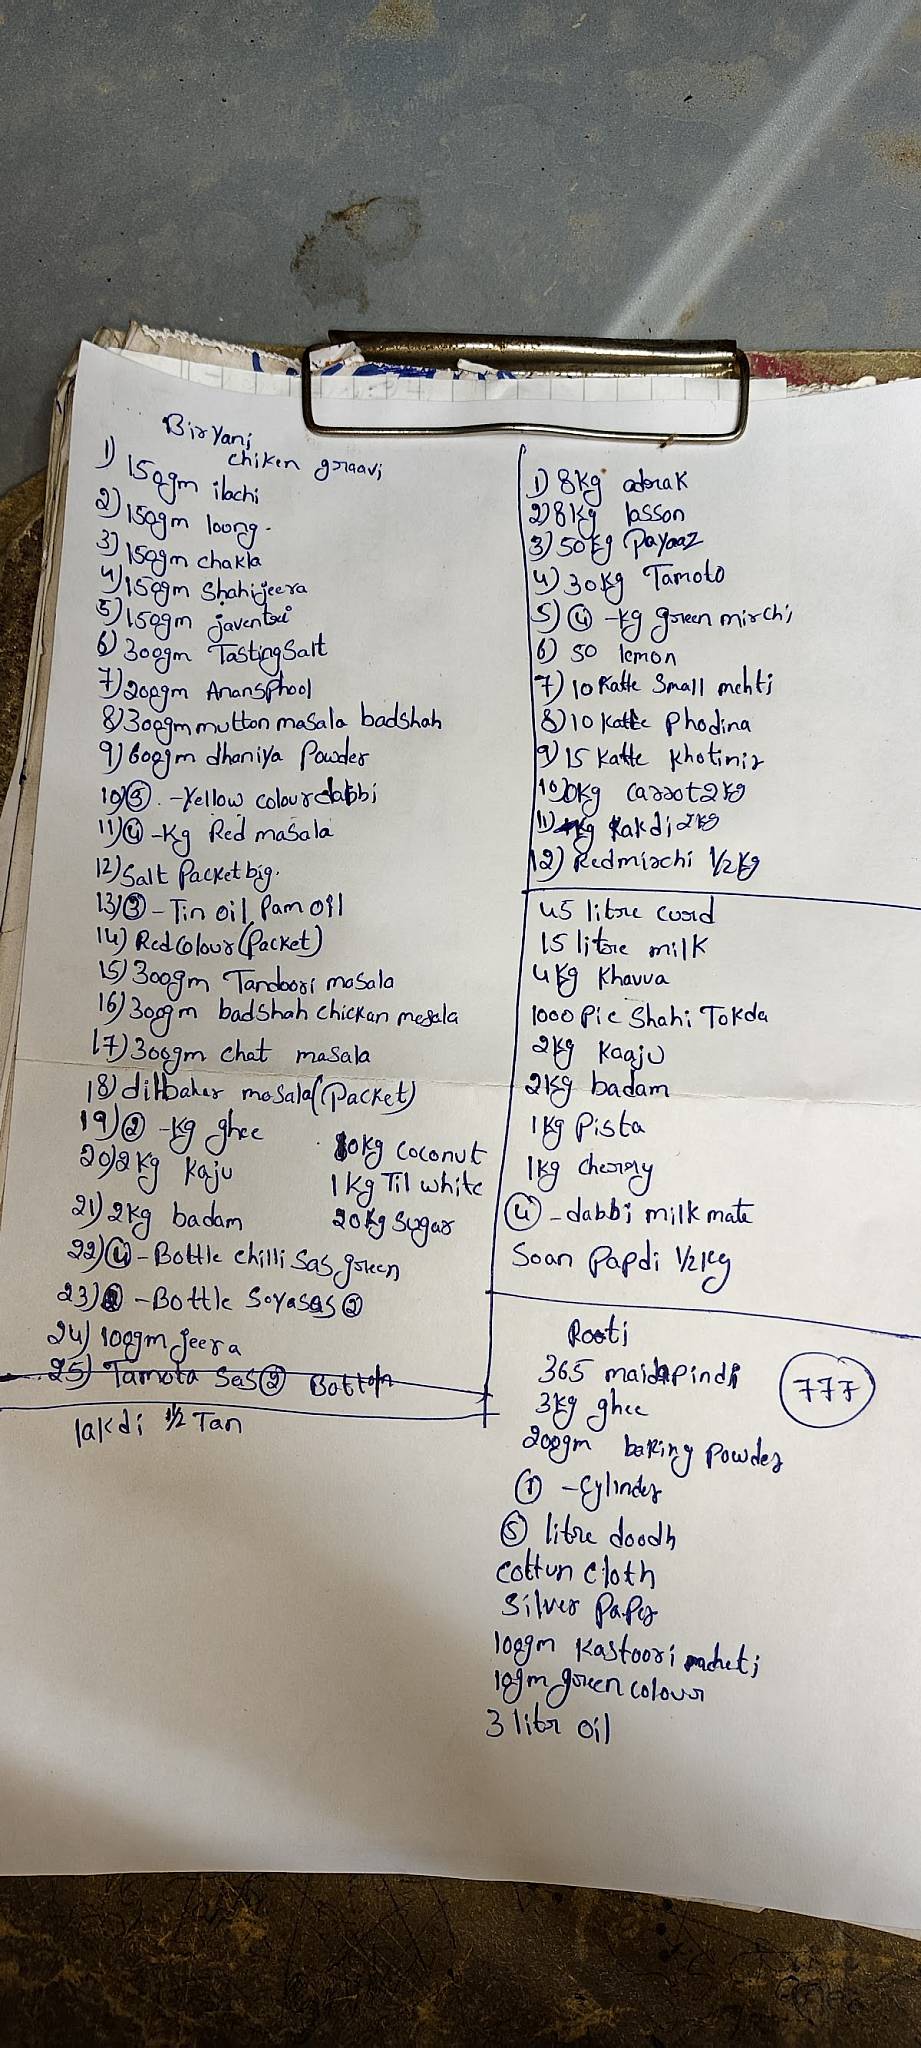 Biryani
chiken graavi
1) 150gm ilachi
2) 150gm loong.
3) 150gm chakla
4) 150gm Shahijeera
5) 150gm javentri
6) 300gm Tasting Salt
7) 200gm Anansphool
8) 300gm mutton masala badshah
9) 600gm dhaniya Powder
10) 3. -Yellow colour dabbi
11) 4 -Kg Red masala
12) Salt Packet big.
13) 3 - Tin oil Pam oil
14) Red Colour (Packet)
15) 300gm Tandoori masala
16) 300gm badshah chickan masala
17) 300gm chat masala
18) dilbahar masala (Packet)
19) 2 -Kg ghee
20) 2Kg Kaju
21) 2Kg badam
22) 4 - Bottle chilli Sas green
23) - Bottle Soyasas 2
24) 100gm jeera
25) Tamota Sas 2 Botton
lakdi 1/2 Tan
10kg coconut
1Kg Til white
20Kg Sugar
1) 8Kg adrak
2) 8Kg lasson
3) 50Kg Payaaz
4) 30Kg Tamoto
5) 4 -Kg green mirchi
6) 50 lemon
7) 10 Katte Small mehti
8) 10 Katte Phodina
9) 15 Katte Khotimir
10) Kg carrot 2Kg
11) Kg Kakdi 2Kg
12) Redmirchi 1/2 Kg
45 litre curd
15 litre milk
4Kg Khavva
1000 Pic Shahi Tokda
2Kg Kaaju
2Kg badam
1Kg Pista
1Kg cherry
4 - dabbi milk mate
Soan Papdi 1/2 Kg
Rooti
365 maida Pindi
777
3Kg ghee
200gm baking Powder
1 - Cylinder
5 litre doodh
Cottun Cloth
Silver Paper
100gm Kastoori meheti
10gm green colour
3 litr oil